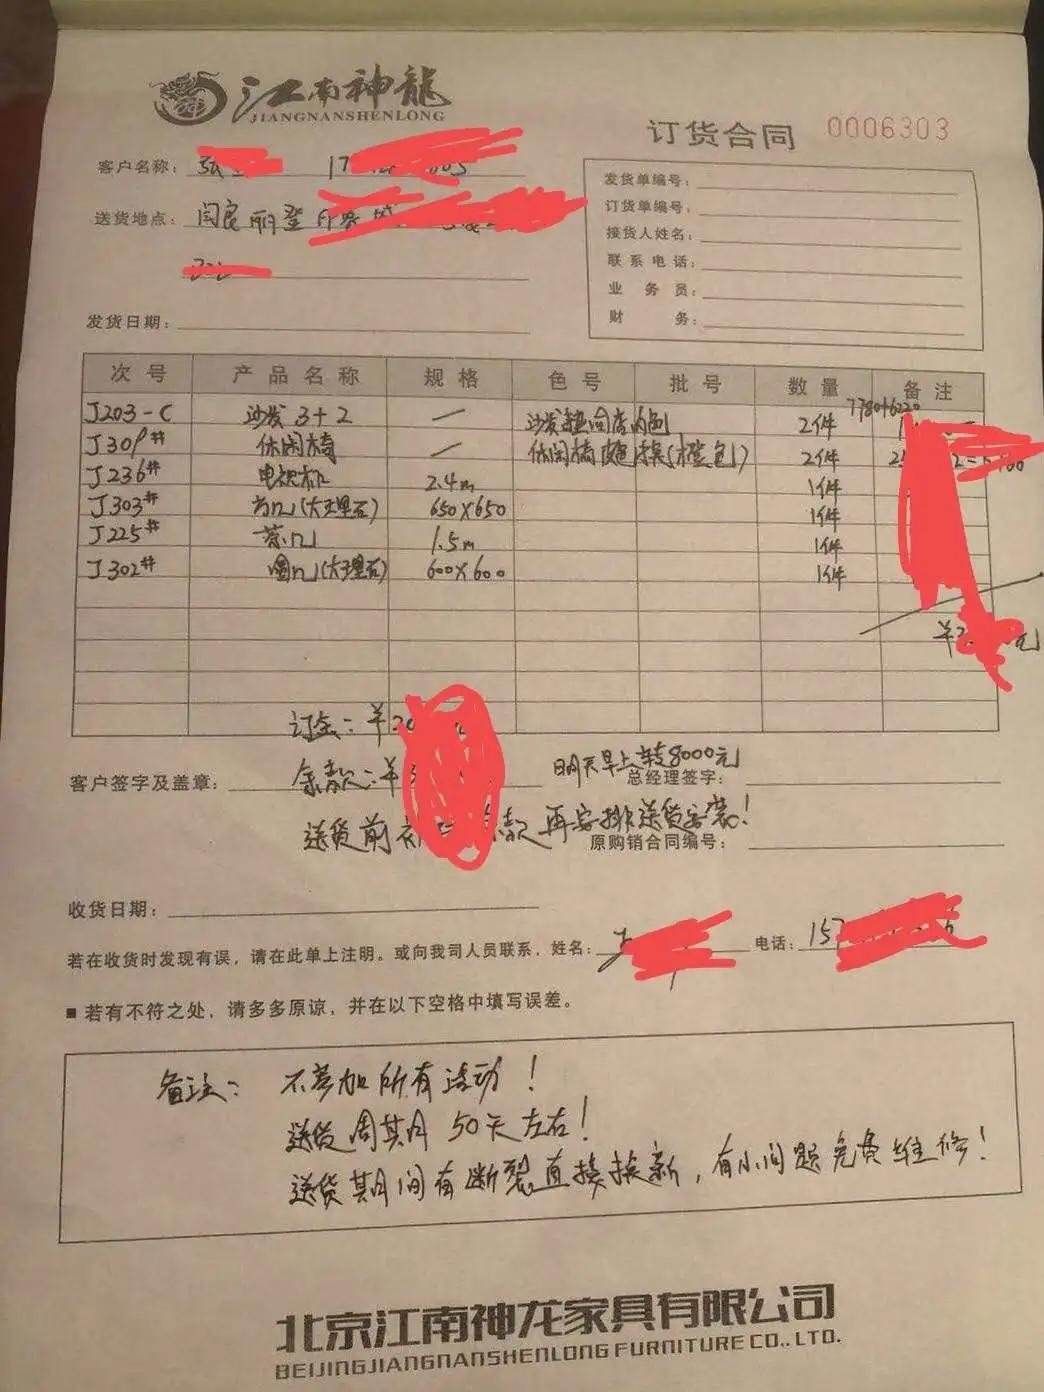 江南神龍
JIANGNANSHENLONG
订货合同 0006303
客户名称：
送货地点：闫良丽登
发货日期：
发货单编号：
订货单编号：
接货人姓名：
联系电话：
业务员：
财务：
次号 产品名称 规格 色号 批号 数量 备注
J203-C 沙发 3+2 — 2件
J309# 休闲椅 — 休闲椅 换(橙色) 2件
J236# 电视柜 2.4m 1件
J303# 方几(大理石) 650×650 1件
J225# 茶几 1.5m 1件
J302# 圆几(大理石) 600×600 1件
订金：¥20
余款：¥ 明天早上转8000元
客户签字及盖章： 总经理签字：
送货前 款再安排送货安装！
原购销合同编号：
收货日期：
若在收货时发现有误，请在此单上注明。或向我司人员联系，姓名： 电话：157
■ 若有不符之处，请多多原谅，并在以下空格中填写误差。
备注：不参加所有活动！
送货周期 50天左右！
送货期间有断裂直接换新，有小问题免费维修！
北京江南神龙家具有限公司
BEIJINGJIANGNANSHENLONG FURNITURE CO.,LTD.